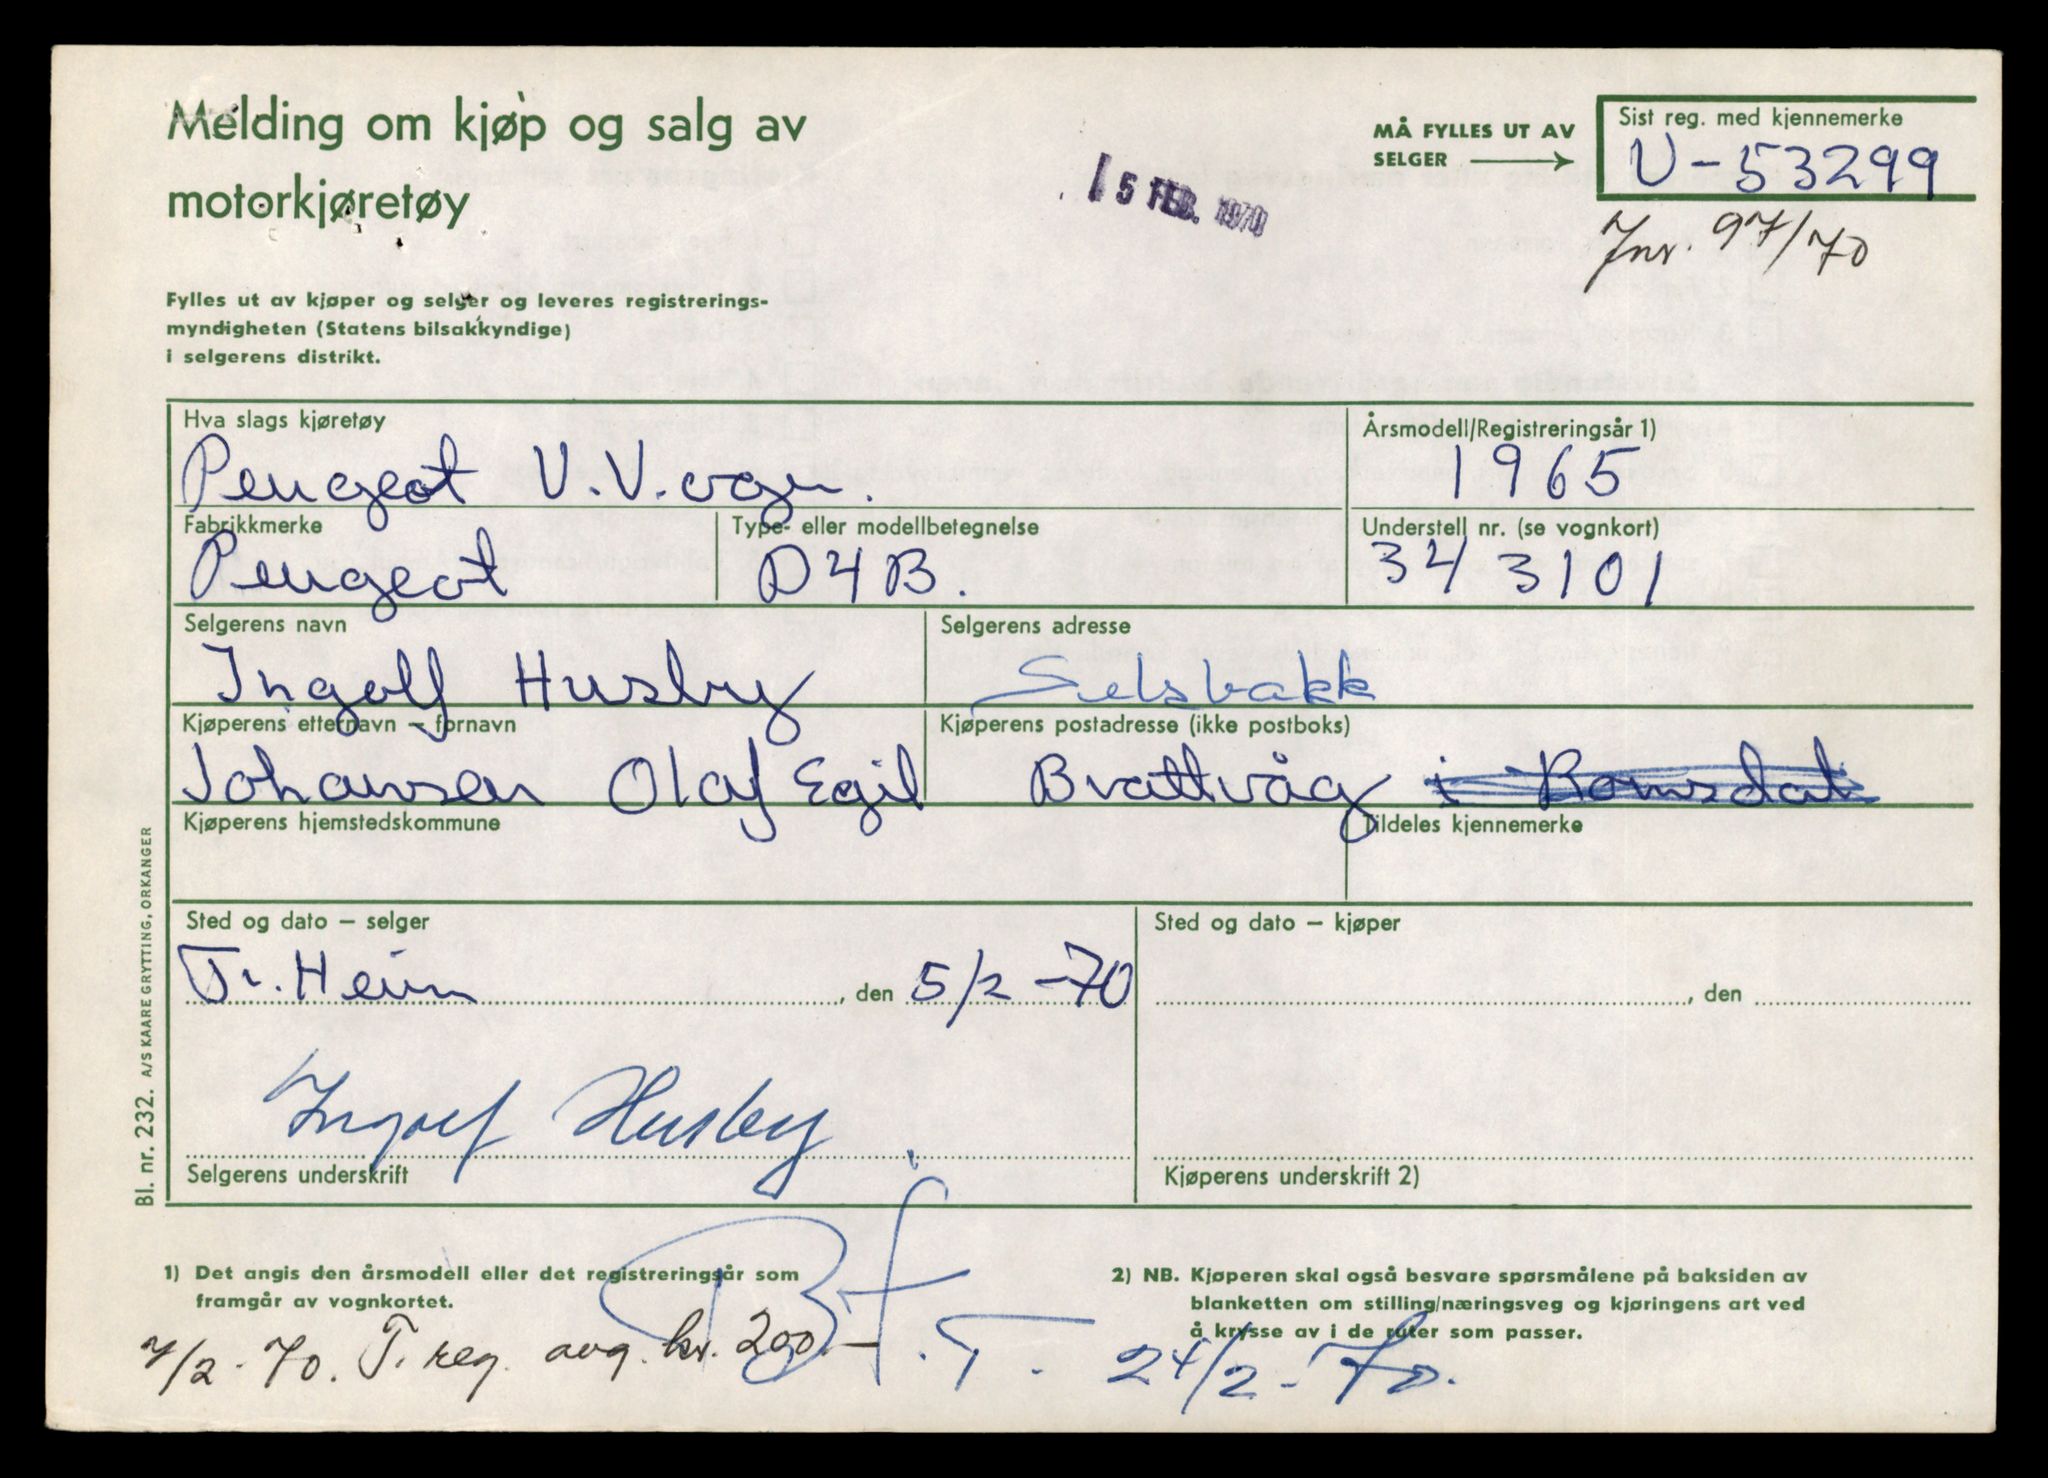 Melding om kjøp og salg av
motorkjøretøy
5 FEB. 1970
MÅ FYLLES UT AV
SELGER
Sist reg. med kjennemerke
U-53299
Jnr. 97/70
Fylles ut av kjøper og selger og leveres registrerings-
myndigheten (Statens bilsakkyndige)
i selgerens distrikt.
Hva slags kjøretøy
Peugeot V.V.vogn.
Årsmodell/Registreringsår 1)
1965
Fabrikkmerke
Peugeot
Type- eller modellbetegnelse
D4B.
Understell nr. (se vognkort)
343101
Selgerens navn
Ingolf Husby
Selgerens adresse
Selsbakk
Kjøperens etternavn – fornavn
Johansen Olaf Egil
Kjøperens postadresse (ikke postboks)
Brattvåg i Romsdal
Kjøperens hjemstedskommune
Tildeles kjennemerke
Sted og dato – selger
Tr.Heim, den 5/2-70
Sted og dato – kjøper
, den
Ingolf Husby
Selgerens underskrift
Kjøperens underskrift 2)
Bl. nr. 232. A/S KAARE GRYTTING, ORKANGER
1) Det angis den årsmodell eller det registreringsår som
framgår av vognkortet.
2) NB. Kjøperen skal også besvare spørsmålene på baksiden av
blanketten om stilling/næringsveg og kjøringens art ved
å krysse av i de ruter som passer.
7/2-70. T. reg. avg. kr. 200.—
24/2-70.